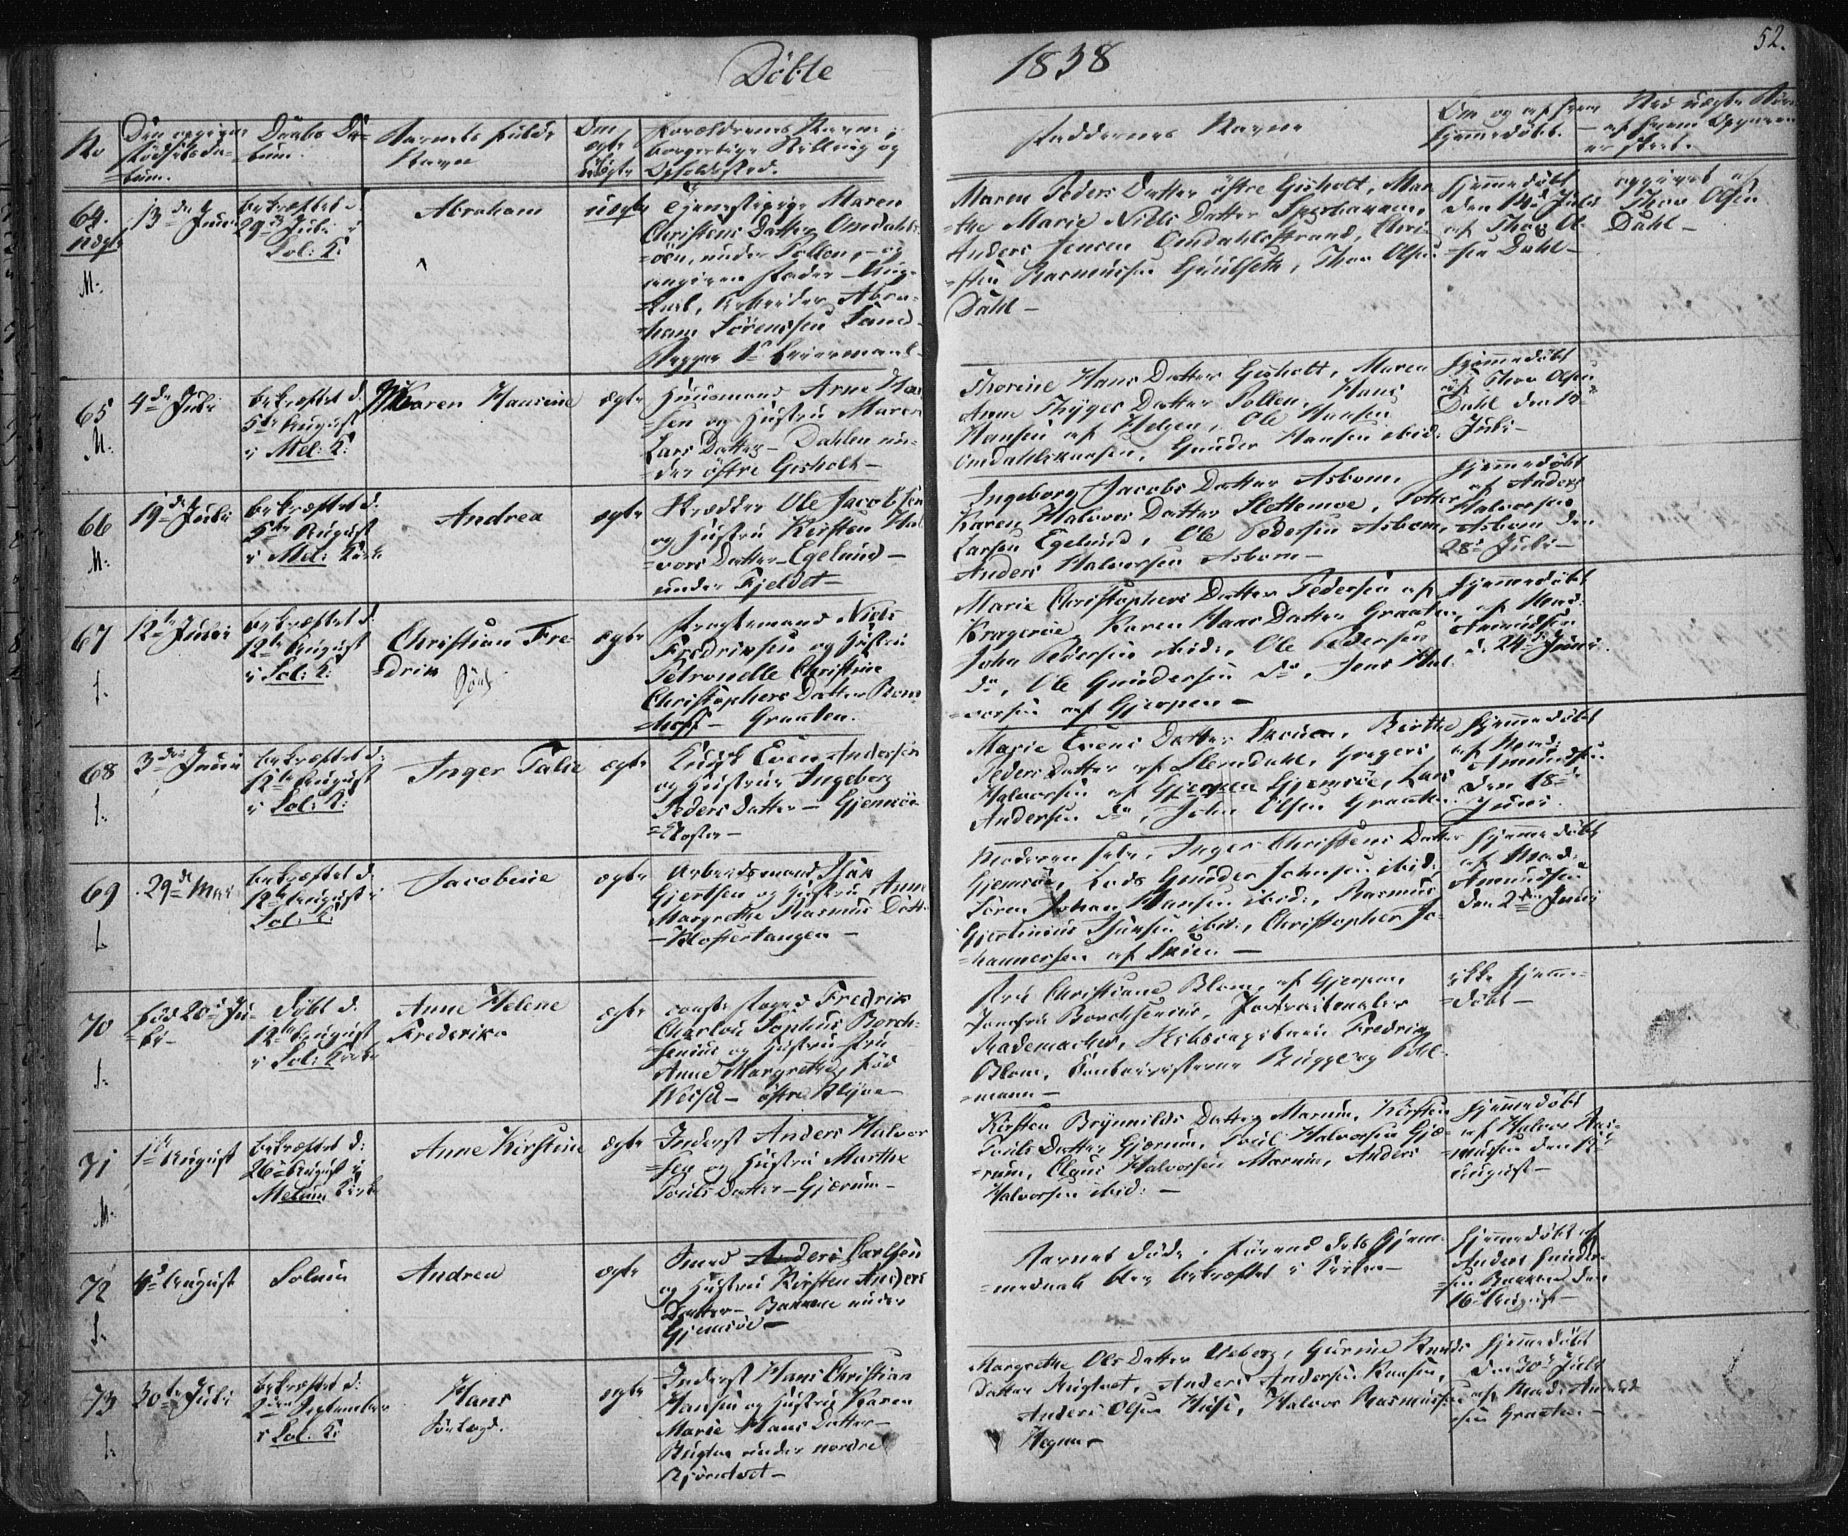 Döbte
1838
52.
No
Den opgivne
Fødselsda-
tum.
Daabs Da-
tum.
Barnets fulde
Navn
Om
ægte
uægte
Forældrenes Navne,
borgerlige Stilling og
Opholdssted.
Faddernes Navne
Om og af hvem
hjemmedöbt.
64.
Uægte
M:
13de Juni
bekræftet
29de Juli i
Sol: K:
Abraham
uægte
Tjenestepige Maren
Christens Datter Omdahls-
-öen, under Sollen, og
angiven Fader Ung-
-karl, Arbeider Abra-
-ham Sörenssen Sand-
Maren Peders Datter östre Gisholt, Mar-
-the Marie Niels Datter
Anders Jensen Omdahlsstrand, Chri-
-sten Rasmussen Gruulseth, Thor Olsen
Dahl —
Hjemmedöbt
den 14de Juli
af Thor Ol-
-sen Dahl —
opgivet af
Thor Olsen
Dahl —
65
M:
4de Juli
bekræftet d:
5te August
i Mel: K:
Maren Hansine
ægte
Huusmand Arne Han-
-sen og Hustru Maren
Lars Datter — Dahlen un-
-der östre Gisholt —
Thorine Hans Datter Gisholt, Maren
Anne Thyges Datter Sollen, Hans
Hansen af Helgen, Ole Hansen
Omdahlskaasen, Gunder Hansen ibid:
Hjemmedöbt
af Thor Olsen
Dahl den
Juli —
66
M:
19de Juli
bekræftet d:
5te August
i Mel: Kirke
Andrea
ægte
Skrædder Ole Jacobsen
og Hustru Kirsten Hal-
-vors Datter — Egelund —
under Fjeldet —
Ingeborg Jacobs Datter Asbom,
Karen Halvors Datter Slettemoe, Peter
Larsen Egelund, Ole Pedersen Asbom,
Anders Halvorsen Asbom —
Hjemmedöbt
af Anders
Halvorsen
Asbom den
28de Juli —
67
S.
12te Juni
bekræftet d:
12te August
i Sol: K:
Christian Fre-
-drik
ægte
Fragtemand Niels
Fredriksen og Hustru
Petronelle Christine
Christophers Datter Rom-
-hoff — Graaten.
Marie Christophers Datter Pedersen af
Kragerøe, Karen Hans Datter Graaten,
John Pedersen ibid:, Ole Pedersen
do, Ole Gundersen do, Jens Hal-
-vorsen af Gjerpen —
Hjemmedöbt
af Mad:
Amundsen
d. 24de Juni
68
S.
3die Juni
bekræftet d:
12te August
i Sol: K:
Inger Talie
ægte
Kudsk Even Andersen
og Hustru Ingeborg
Peders Datter — Gjemsöe
-Kloster —
Marie Evens Datter Skien, Birthe
Peders Datter af Slemdahl, Gregers
Halvorsen af Gjerpen Gjemsöe, Lars
Andersen do, John Olsen Graaten.
Hjemmedöbt
af Mad:
Amundsen
den 18de
Juni.
69
S.
29de Mai
bekræftet d:
12te August i
Sol: K:
Jacobine
ægte
Arbeidsmand Isak
Gjertsen og Hustru Anne
Margrethe Rasmus Datt:
— Klostertangen —
Moderen selv, Inger Christens Datter
Gjemsöe, Lods Gunder Johnsen ibid:,
Sören Johan Hansen ibid:, Rasmus
Gjertinius Isaksen ibid:, Christopher Jo-
-hannessen af Skien —
Hjemmedöbt
af Mad:
Amundsen
den 2den Juni
70
S.
födt 20de Ju-
-li —
Döbt d:
12te August
i Sol: Kirke
Anne Helene
Frederika
ægte
Foged Fredrik
Carl Sophus Borch-
-senius og Hustru Fru
Anne Margrethe, föd
Weisel — östre Klyve —
Fru Christiane Blom af Gjerpen,
Jomfru Borchsenius,
Rademacher, Fredrik
Blom,
-mann —
ikke hjemme-
-döbt —
71
M:
1ste August
bekræftet d:
26de August i
Melum Kirke
Anne Kirstine
ægte
Inderst Anders Halvor-
-sen og Hustru Marthe
Pouls Datter — Gjærum —
Kirsten Brynnilds Datter Marum, Kirsten
Pouls Datter Gjærum, Poul Halvorsen Gjæ-
-rum, Claus Halvorsen Marum, Anders
Halvorsen ibid: —
Hjemmedöbt
af Halvor Ras-
-mussen den
August —
72
S.
4de August
Solum
Andrea
ægte
Smed Anders Carlsen
og Hustru Kirsten Anders
Datter — Bakken under
Gjemsöe —
Barnet döde, förend dets Hjem-
-medaab blev bekræftet i Kirken —
Hjemmedöbt af
Anders Gunder-
-sen Bakken den
16de August —
73
S.
30te Juli
bekræftet d:
2den September
i Sol: K:
Hans
ægte
Inderst Hans Christian
Hansen og Hustru Karen
Marie Hans Datter —
under nordre
Björntvet —
Margrethe Ols Datter Aaberg, Gurine Knuds
Datter Rugtvet, Anders Andersen Kaasen,
Anders Olsen Huse, Halvor Rasmussen
Hegna —
Hjemmedöbt
den 30te Juli
af Mad: Amund-
-sen Graaten —